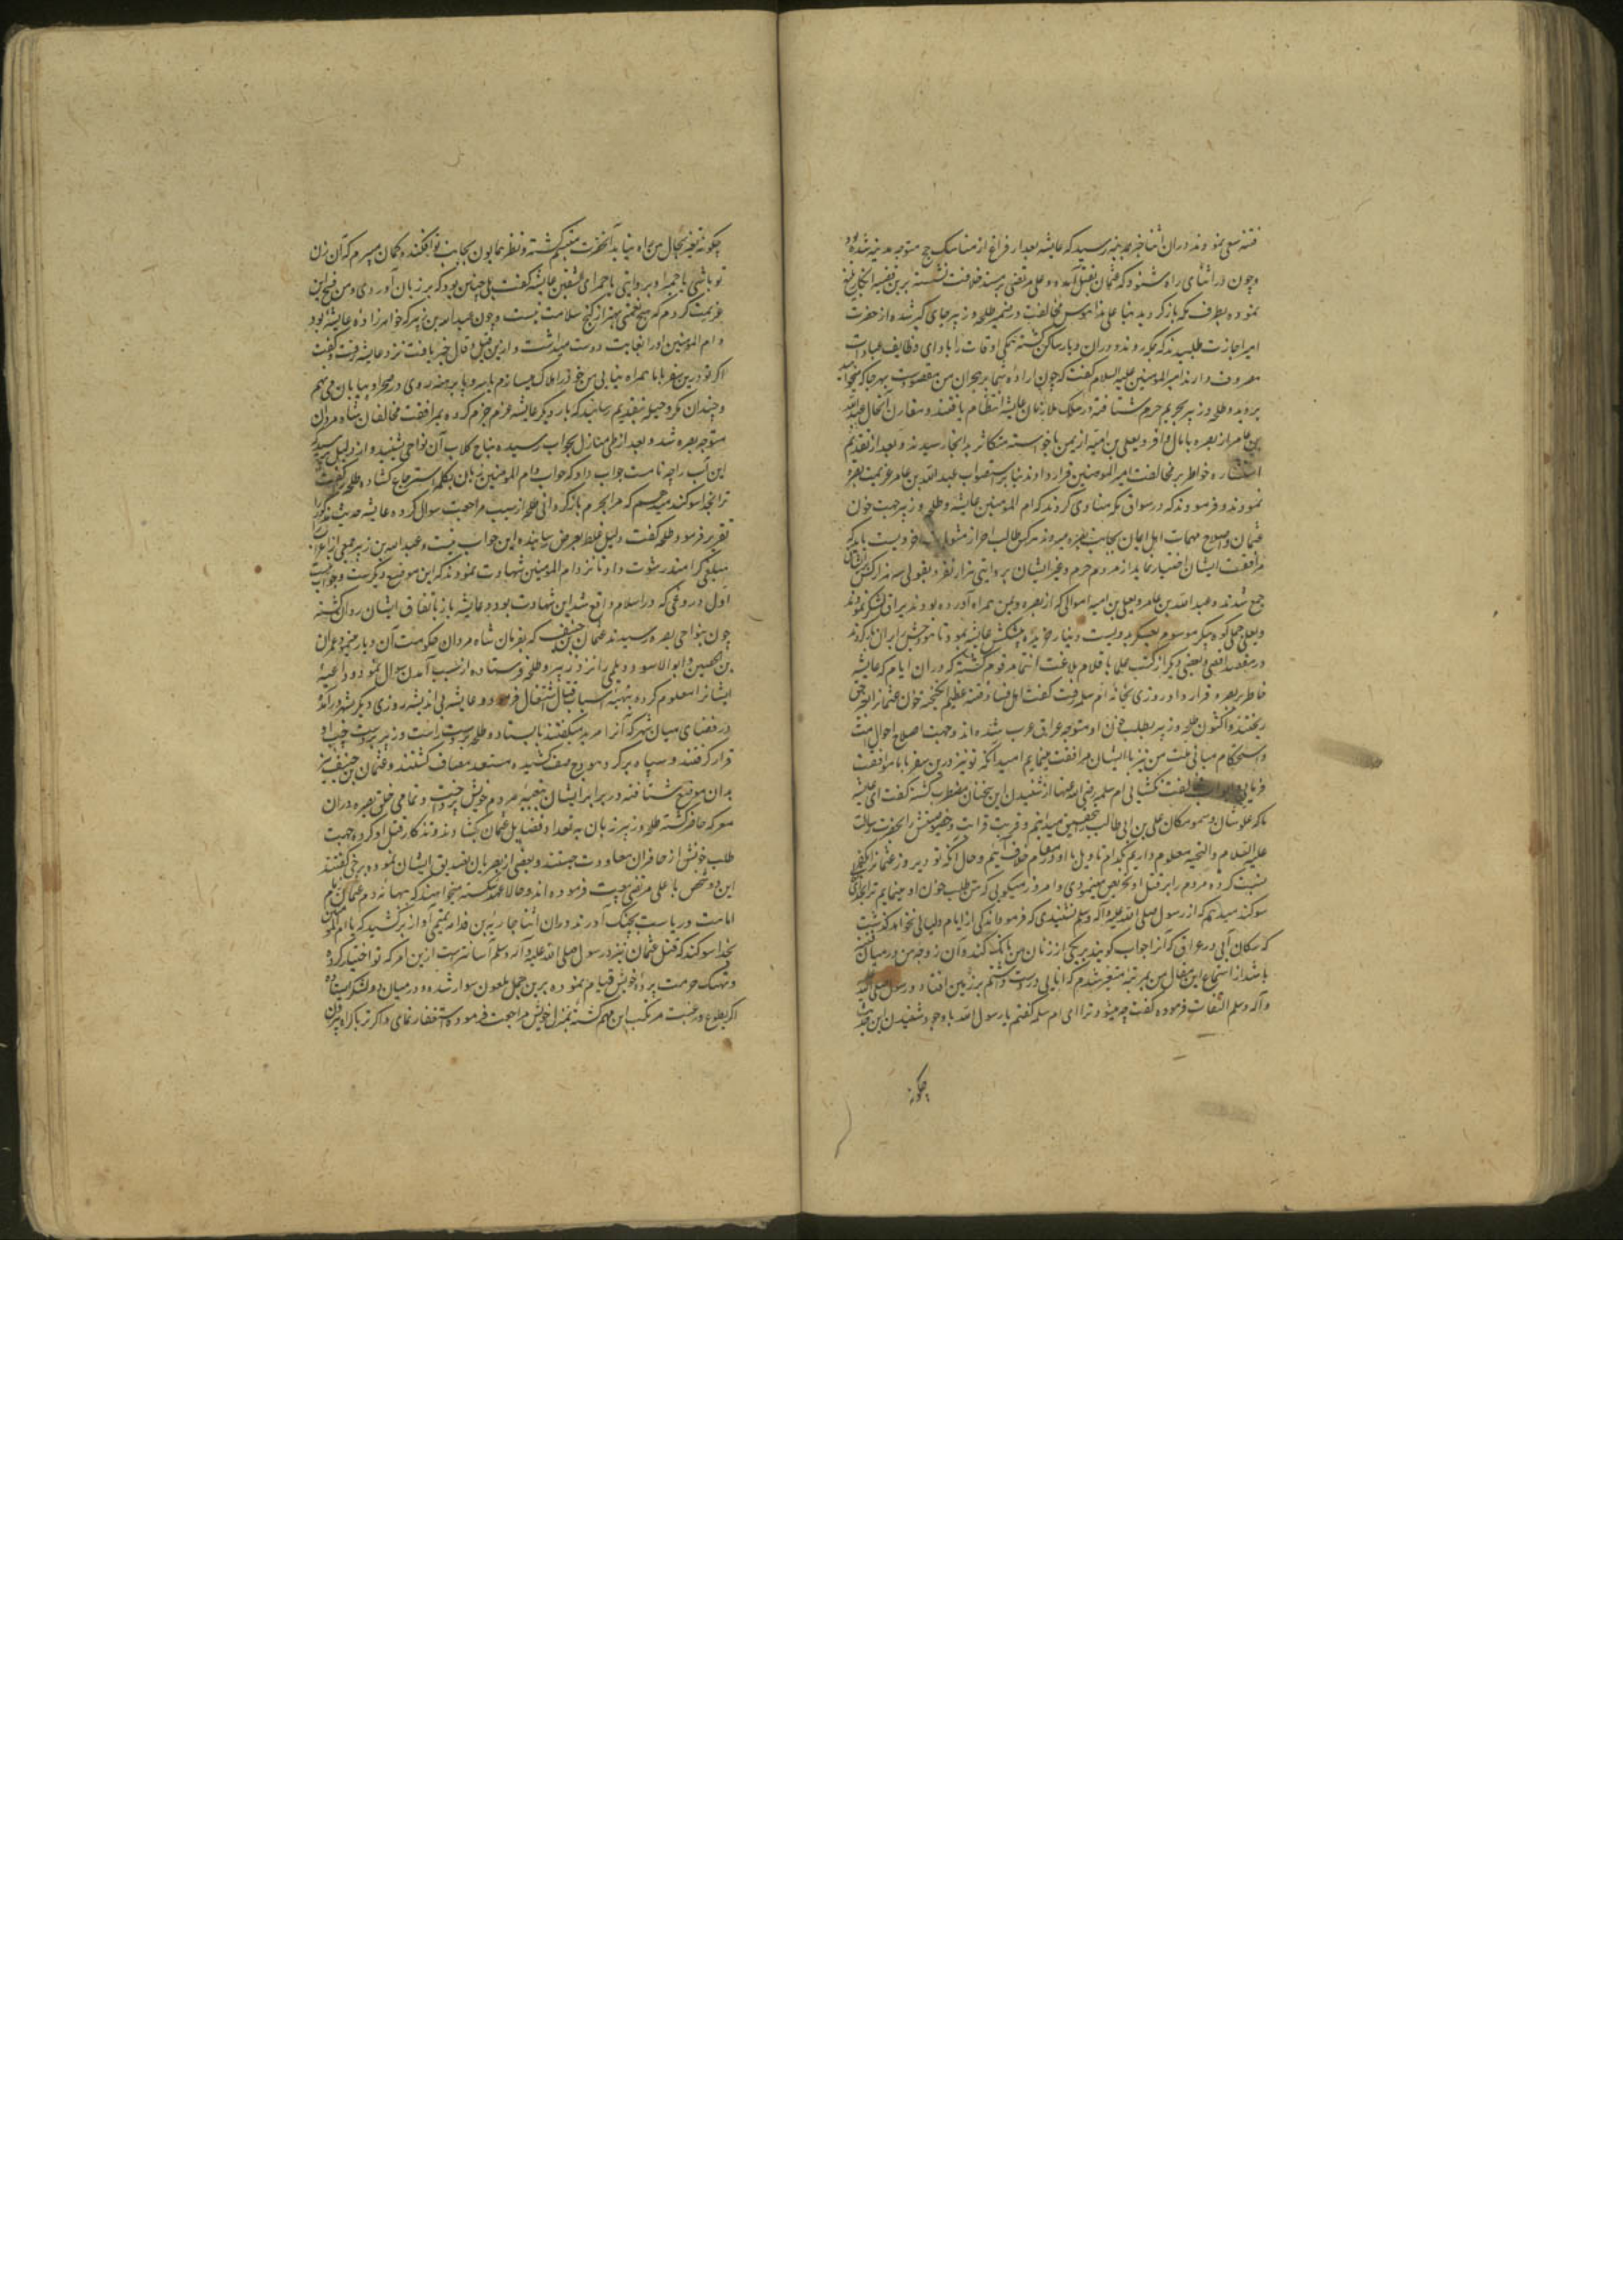 فتنه سعی نمودند دران اثنا خبر بمدینه رسید که عایشه بعد از فراغ از مناسک حج متوجه مدینه شده بود
و چون در اثنای راه شنود که عثمان بقتل آمده و علی مرتضی بر مسند خلافت نشسته برین قضیه انکار بلیغ
نموده بطرف مکه باز گردید بنا علی هذا هوس مخالفت در ضمیر طلحه و زبیر جای گیر شده از حضرت
امیر اجازت طلبیدند که بمکه روند و دران دیار ساکن گشته همگی اوقات را بادای وظایف عبادات
مصروف دارند امیر المومنین علیه السلام گفت که چون اراده شما بر هجران من مقصورست بهرجا که میخواهید
بروید و طلحه و زبیر بحریم حرم شتافته در سلک ملازمان عایشه انتظام یافتند و مقارن آنحال عبدالله
بن عامر از بصره با مال وافر و یعلی بن امیه از یمن با خواسته متکاثر بدانجا رسیدند و بعد از تقدیم
استشاره خواطر بر مخالفت امیر المومنین قرار دادند بنابر استصواب عبدالله بن عامر عزیمت بصره
نمودند و فرمودند که در سواق مکه منادی کردند که ام المومنین عایشه و طلحه و زبیر جهت خون
عثمان و اصلاح مهمات اهل ایمان بجانب بصره میروند هرکس طالب احراز مثوبات اخرویست باید که
مرافقت ایشان اختیار نماید از مردم حرم و غیر ایشان بروایتی هزار نفر و بقولی سه هزار کس بر ایشان
جمع شدند و عبدالله بن عامر و یعلی بن امیه اموالی که از بصره و یمن همراه آورده بودند بیراق لشکر نمودند
و یعلی جملی کوه پیکر موسوم بعسکر بدویست دینار خریده پیشکش عایشه نمود تا هودجش را بران بار کردند
در مقصد اقصی و بعضی دیگر از کتب علما باقلام بلاغت انتما مرقوم گشته که دران ایام که عایشه
خاطر بر بصره قرار داد روزی بخانه ام سلمه رفت گفت اهل فساد فتنه عظیم انگیخته خون عثمانرا بغیر حق
ریختند و اکنون طلحه و زبیر بطلب خون او متوجه عراق عرب شده‌اند و جهت اصلاح احوال امت
و استحکام مبانی ملت من نیز با ایشان مرافقت مینمایم امید آنکه تو نیز درین سفر با ما موافقت
فرمایی مخالفت نگشایی ام سلمه رضی الله عنها از شنیدن این سخنان مضطرب گشته گفت ای عایشه
ما که علو شان و سمو مکان علی بن ابی طالب بتحقیق میدانیم و قربت قرابت و خصوصیتش با حضرت رسالت
علیه السلام والتحیه معلوم داریم بکدام تاویل با او در مقام خلاف آییم و حال آنکه تو دیروز عثمانرا بکفر
نسبت کرده مردم را بر قتل او تحریص مینمودی و امروز میگویی که من طلب خون او مینمایم ترا بخدای
سوگند میدهم که از رسول صلی الله علیه و آله وسلم نشنیدی که فرمود اندکی از ایام و لیالی نخواهد گذشت
که سگان آبی در عراق که آنرا حواب گویند بر یکی از زنان من بانگ کنند و آن زوجه من در میان فتنه
باشد از استماع این مقال من بمرتبه متغیر شدم که انایی در دست داشتم بر زمین افتاد و رسول صلی الله علیه
و آله وسلم التفات فرموده گفت چه میشود ترا ای ام سلمه گفتم یا رسول الله با وجود شنیدن این حدیث
چگونه
چگونه تغیر بحال من راه نیابد آنحضرت متبسم گشته و نظر همایون بجانب تو افکند و گمان میبرم که آن زن
تو باشی یا حمیرا و بروایتی یا حمرای الشفتین عایشه گفت بلی چنین بود که بر زبان آوردی و من فسخ این
عزیمت کردم که هیچ نعمتی بهتر از کنج سلامت نیست و چون عبدالله بن زبیر که خواهرزاده عایشه بود
و ام المومنین او را بغایت دوست میداشت و ازین قیل و قال خبر یافت نزد عایشه رفت و گفت
اگر تو درین سفر با ما همراه نیایی من خود را هلاک میسازم یا سر و پا برهنه روی در صحرا و بیابان می نهم
و چندان مکر و حیله بتقدیم رسانید که بار دیگر عایشه عزم جزم کرده بمرافقت مخالفان شاه مردان
متوجه بصره شد و بعد از طی منازل بحواب رسیده نباح کلاب آن نواحی بشنید و از دلیل پرسید که
این آب را چه نامست جواب داد که حواب و ام المومنین زبان بکلمه استرجاع گشاده طلحه را گفت
ترا بخدا سوگند میدهم که مرا بحرم بازگردانی طلحه از سبب مراجعت سوال کرده عایشه حدیث مذکور را
تقریر فرمود طلحه گفت دلیل غلط بعرض رسانیده این حواب نیست و عبدالله بن زبیر جمعی از اعراب را
مبلغی گرامند رشوت داد تا نزد ام المومنین شهادت نمودند که این موضع دیگرست و حواب نیست
اول دروغی که در اسلام واقع شد این شهادت بود و عایشه باز باتفاق ایشان روان گشته
چون بنواحی بصره رسیدند عثمان بن حنیف که بفرمان شاه مردان حکومت آن دیار مینمود عمران
بن الحصین و ابوالاسود دویلی را نزد زبیر و طلحه فرستاده از سبب آمدن سوال نمود و داعیه
ایشانرا معلوم کرده بتهیه اسباب قتال اشتغال فرمود و عایشه بی اندیشه روزی دیگر بشهر درآمده
در فضای میان شهر که آنرا مربد میگفتند بایستاد و طلحه بر دست راست و زبیر بر دست چپ او
قرار گرفتند و سپاه بر گرد هودج صف کشیده مستعد مصاف گشتند و عثمان بن حنیف نیز
بدان موضع شتافته در برابر ایشان بتعبیه مردم خویش پرداخت و تمامی خلق بصره دران
معرکه حاضر گشته طلحه و زبیر زبان بتعداد فضایل عثمان گشادند و تذکار قتل او کرده جهت
طلب خونش از حاضران معاودت جستند و بعضی از بصریان تصدیق ایشان نموده برخی گفتند
این دو شخص با علی مرتضی بیعت فرموده‌اند و حالا عهد شکسته میخواهند که ببهانه دم عثمان نام
امامت و ریاست بچنگ آورند دران اثنا جاریة بن قدامه تمیمی آواز برکشید که یا ام المومنین
بخدا سوگند که قتل عثمان نزد رسول صلی الله علیه و آله وسلم آسانترست ازین امر که تو اختیار کرده
و بهتک حرمت پرده خویش قیام نموده برین جمل ملعون سوار شده و در میان دو لشکر ایستاده
اگر بطوع و رغبت مرتکب این مهم گشته بمنزل خویش مراجعت فرموده استغفار نمای و اگر ترا باکراه بیرون